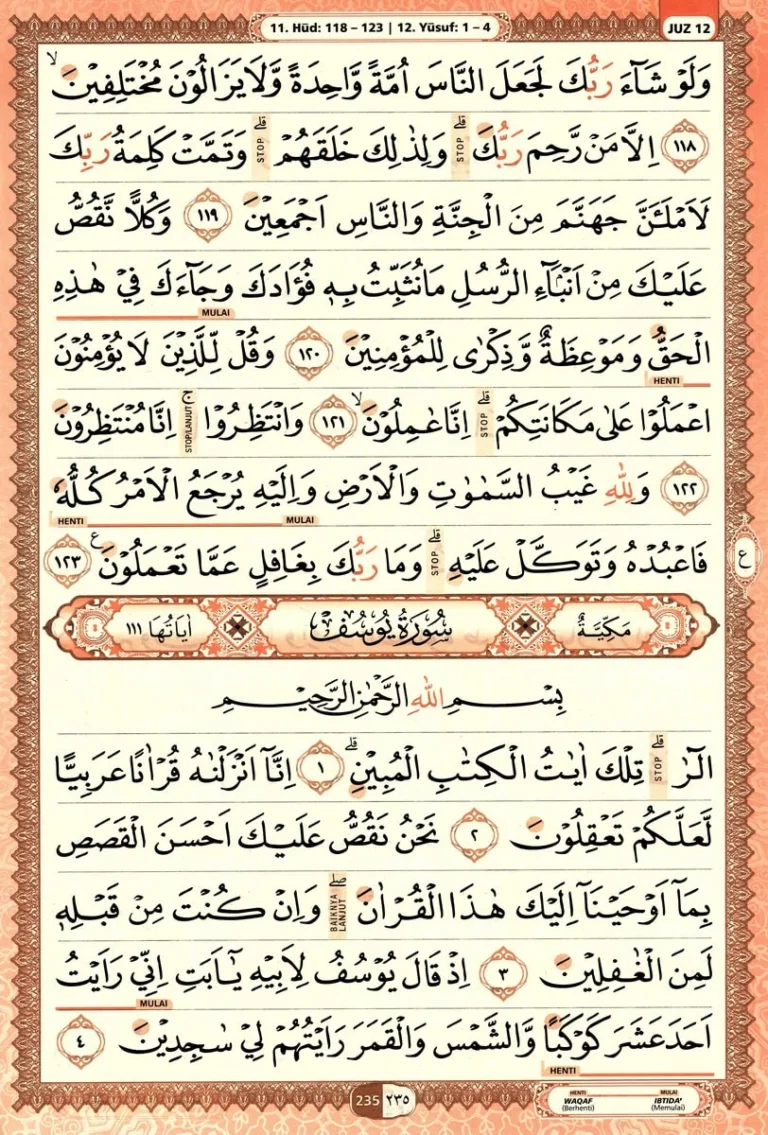 11. Hūd: 118 – 123 | 12. Yūsuf: 1 – 4
JUZ 12
وَلَوْ شَاۤءَ رَبُّكَ لَجَعَلَ النَّاسَ اُمَّةً وَّاحِدَةً وَّلَا يَزَالُوْنَ مُخْتَلِفِيْنَۙ
١١٨ اِلَّا مَنْ رَّحِمَ رَبُّكَ ۗ STOP وَلِذٰلِكَ خَلَقَهُمْ ۗ STOP وَتَمَّتْ كَلِمَةُ رَبِّكَ
لَاَمْلَـَٔنَّ جَهَنَّمَ مِنَ الْجِنَّةِ وَالنَّاسِ اَجْمَعِيْنَ ١١٩ وَكُلًّا نَّقُصُّ
عَلَيْكَ مِنْ اَنْۢبَاۤءِ الرُّسُلِ مَا نُثَبِّتُ بِهٖ فُؤَادَكَ وَجَاۤءَكَ فِيْ هٰذِهِ
MULAI
الْحَقُّ وَمَوْعِظَةٌ وَّذِكْرٰى لِلْمُؤْمِنِيْنَ ١٢٠ وَقُلْ لِّلَّذِيْنَ لَا يُؤْمِنُوْنَ
HENTI
اعْمَلُوْا عَلٰى مَكَانَتِكُمْ ۗ STOP اِنَّا عٰمِلُوْنَۙ ١٢١ وَانْتَظِرُوْا ۚ STOP/LANJUT اِنَّا مُنْتَظِرُوْنَ
١٢٢ وَلِلّٰهِ غَيْبُ السَّمٰوٰتِ وَالْاَرْضِ وَاِلَيْهِ يُرْجَعُ الْاَمْرُ كُلُّهٗ
MULAI HENTI
فَاعْبُدْهُ وَتَوَكَّلْ عَلَيْهِ ۗ STOP وَمَا رَبُّكَ بِغَافِلٍ عَمَّا تَعْمَلُوْنَ ع ١٢٣
ع
مَكِّيَّةٌ سُوْرَةُ يُوْسُفَ اٰيَاتُهَا ١١١
بِسْمِ اللّٰهِ الرَّحْمٰنِ الرَّحِيْمِ
الۤرٰ ۗ STOP تِلْكَ اٰيٰتُ الْكِتٰبِ الْمُبِيْنِۗ ١ اِنَّآ اَنْزَلْنٰهُ قُرْاٰنًا عَرَبِيًّا
لَّعَلَّكُمْ تَعْقِلُوْنَ ٢ نَحْنُ نَقُصُّ عَلَيْكَ اَحْسَنَ الْقَصَصِ
بِمَآ اَوْحَيْنَآ اِلَيْكَ هٰذَا الْقُرْاٰنَ ۖ BAIKNYA LANJUT وَاِنْ كُنْتَ مِنْ قَبْلِهٖ
لَمِنَ الْغٰفِلِيْنَ ٣ اِذْ قَالَ يُوْسُفُ لِاَبِيْهِ يٰٓاَبَتِ اِنِّيْ رَاَيْتُ
MULAI
اَحَدَ عَشَرَ كَوْكَبًا وَّالشَّمْسَ وَالْقَمَرَ رَاَيْتُهُمْ لِيْ سٰجِدِيْنَ ٤
HENTI
235 ٢٣٥
HENTI MULAI
WAQAF IBTIDA'
(Berhenti) (Memulai)